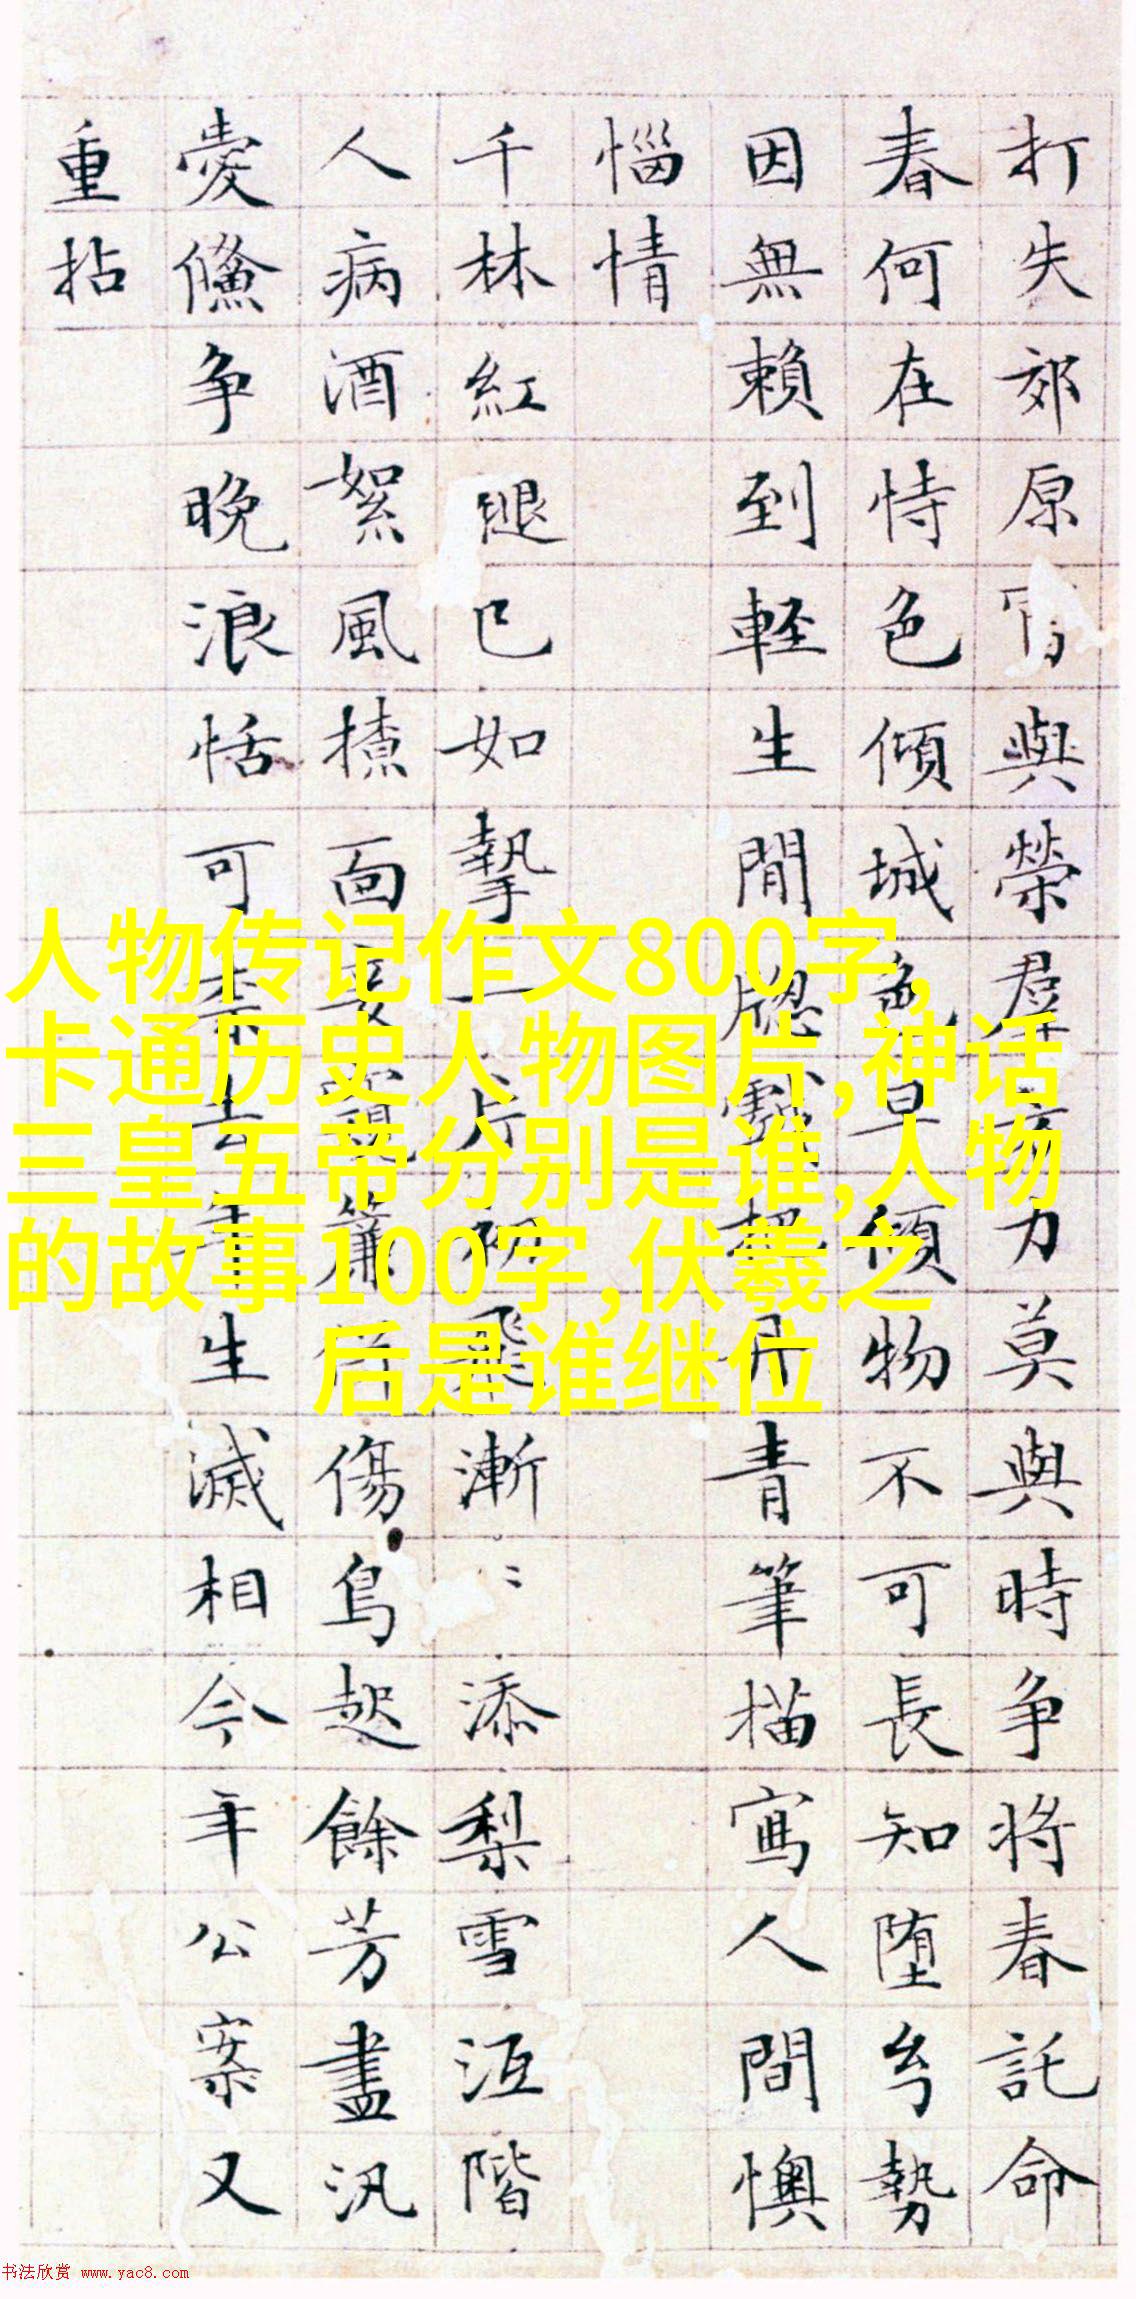 打失郊原與榮羣力莫與時争將春託命
春何在恃色傾城色早傾物不可長知堕勢
因無賴到輕生閒牕戲把丹青筆描寫人間懊
惱情
千林紅褪已如一片初飛漸〻添梨雪沍階
人病酒絮風面覷簾前傷鳥起餘芳盡汎
愛鯈争晚浪恬可柰去年生滅相今年公案又
重拈
人物传记作文800字,
卡通历史人物图片,神话
三皇五帝分别是谁,人物
的故事100字,伏羲之
后是谁继位
书法欣赏 www.yac8.com